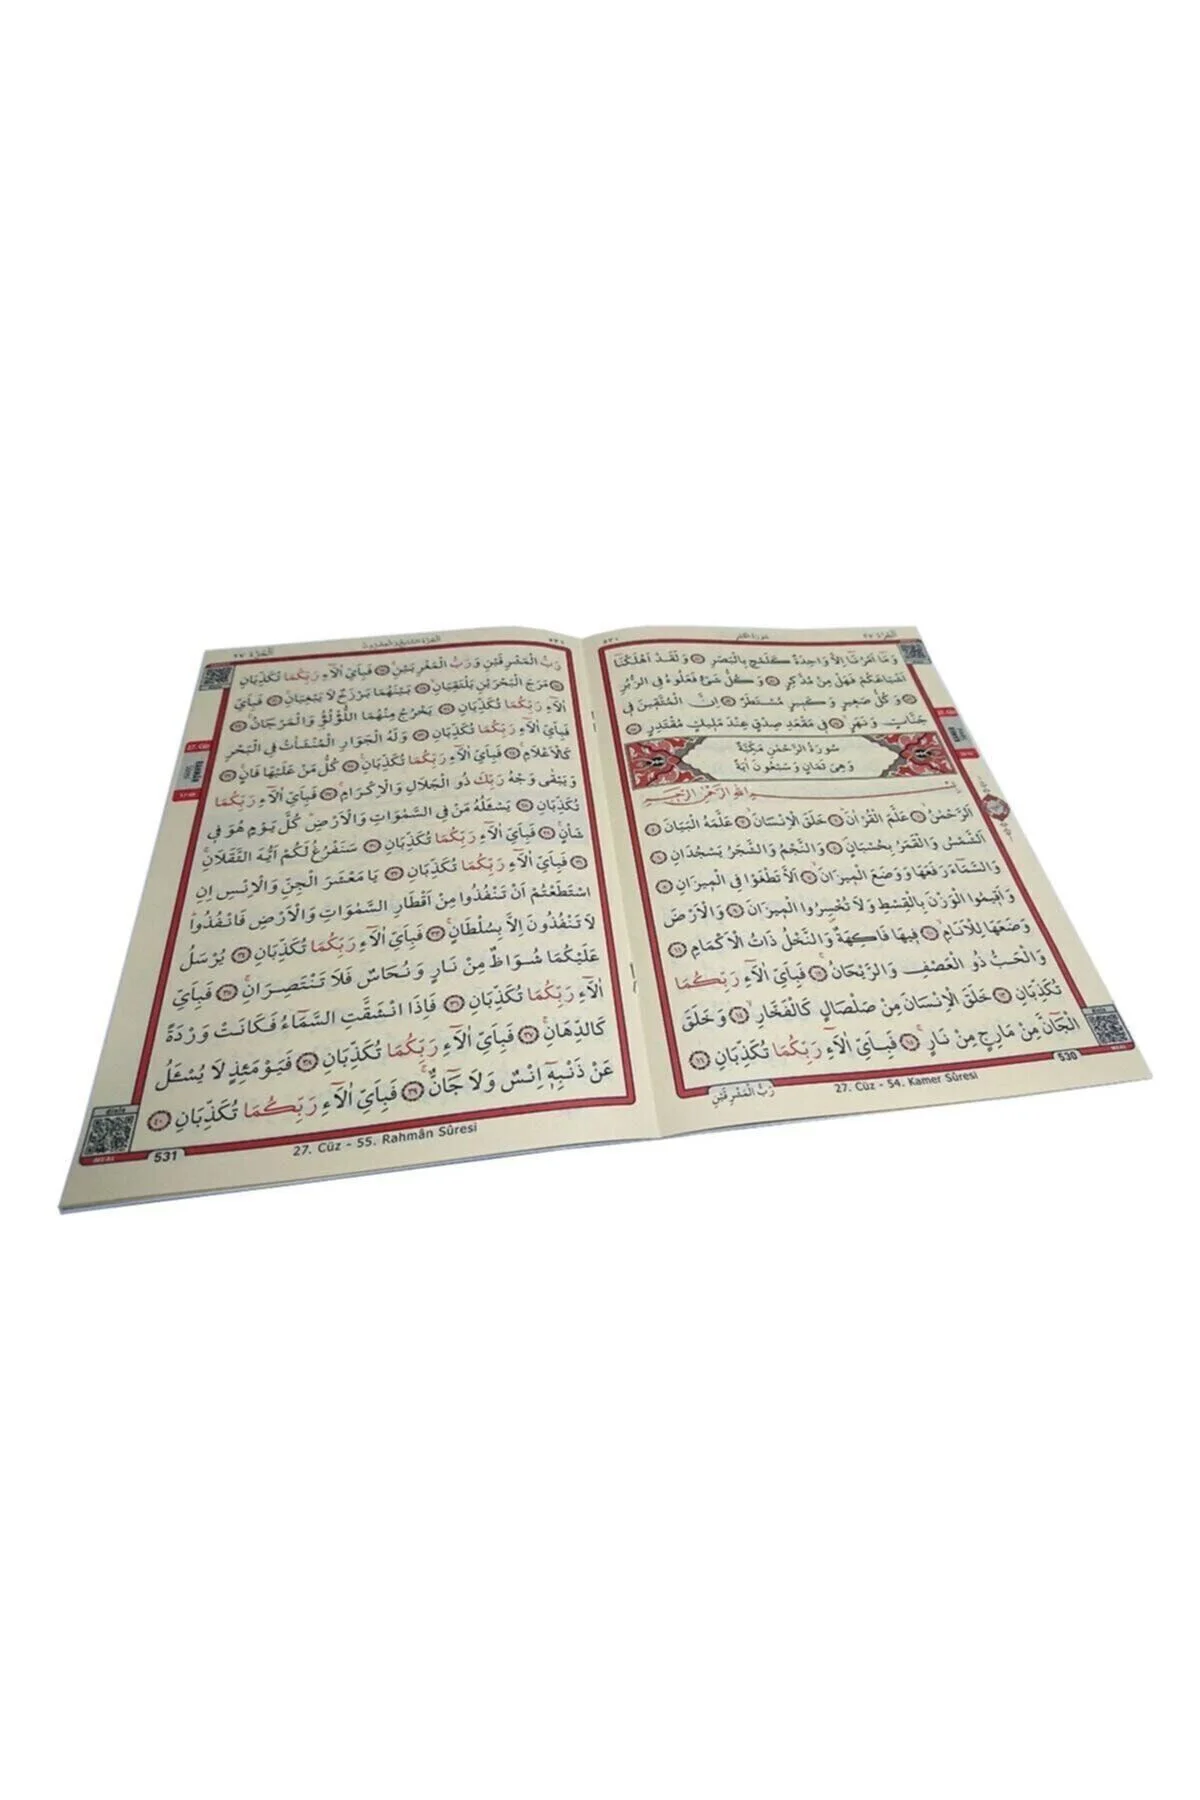 الجزء ٢٧
سورة القمر
٥٣٠
وَمَٓا اَمْرُنَٓا اِلَّا وَاحِدَةٌ كَلَمْحٍ بِالْبَصَرِ ﴿٥٠﴾ وَلَقَدْ اَهْلَكْنَٓا
اَشْيَاعَكُمْ فَهَلْ مِنْ مُدَّكِرٍ ﴿٥١﴾ وَكُلُّ شَيْءٍ فَعَلُوهُ فِي الزُّبُرِ
﴿٥٢﴾ وَكُلُّ صَغِيرٍ وَكَبِيرٍ مُسْتَطَرٌ ﴿٥٣﴾ اِنَّ الْمُتَّقِينَ فِي
جَنَّاتٍ وَنَهَرٍ ﴿٥٤﴾ فِي مَقْعَدِ صِدْقٍ عِنْدَ مَلِيكٍ مُقْتَدِرٍ ﴿٥٥﴾
سُورَةُ الرَّحْمٰنِ مَكِّيَّةٌ
وَهِيَ ثَمَانٍ وَسَبْعُونَ اٰيَةً
بِسْمِ اللهِ الرَّحْمٰنِ الرَّحِيمِ
اَلرَّحْمٰنُ ﴿١﴾ عَلَّمَ الْقُرْاٰنَ ﴿٢﴾ خَلَقَ الْاِنْسَانَ ﴿٣﴾ عَلَّمَهُ الْبَيَانَ ﴿٤﴾
اَلشَّمْسُ وَالْقَمَرُ بِحُسْبَانٍ ﴿٥﴾ وَالنَّجْمُ وَالشَّجَرُ يَسْجُدَانِ ﴿٦﴾
وَالسَّمَٓاءَ رَفَعَهَا وَوَضَعَ الْمِيزَانَ ﴿٧﴾ اَلَّا تَطْغَوْا فِي الْمِيزَانِ ﴿٨﴾
وَاَقِيمُوا الْوَزْنَ بِالْقِسْطِ وَلَا تُخْسِرُوا الْمِيزَانَ ﴿٩﴾ وَالْاَرْضَ
وَضَعَهَا لِلْاَنَامِ ﴿١٠﴾ فِيهَا فَاكِهَةٌ وَالنَّخْلُ ذَاتُ الْاَكْمَامِ ﴿١١﴾
وَالْحَبُّ ذُو الْعَصْفِ وَالرَّيْحَانُ ﴿١٢﴾ فَبِاَيِّ اٰلَٓاءِ رَبِّكُمَا
تُكَذِّبَانِ ﴿١٣﴾ خَلَقَ الْاِنْسَانَ مِنْ صَلْصَالٍ كَالْفَخَّارِ ﴿١٤﴾ وَخَلَقَ
الْجَٓانَّ مِنْ مَارِجٍ مِنْ نَارٍ ﴿١٥﴾ فَبِاَيِّ اٰلَٓاءِ رَبِّكُمَا تُكَذِّبَانِ ﴿١٦﴾
530
27. Cüz - 54. Kamer Sûresi
رَبُّ الْمَشْرِقَيْنِ
٥٣١
الجزء ٢٧
رَبُّ الْمَشْرِقَيْنِ وَرَبُّ الْمَغْرِبَيْنِ ﴿١٧﴾ فَبِاَيِّ اٰلَٓاءِ رَبِّكُمَا تُكَذِّبَانِ
﴿١٨﴾ مَرَجَ الْبَحْرَيْنِ يَلْتَقِيَانِ ﴿١٩﴾ بَيْنَهُمَا بَرْزَخٌ لَا يَبْغِيَانِ ﴿٢٠﴾ فَبِاَيِّ
اٰلَٓاءِ رَبِّكُمَا تُكَذِّبَانِ ﴿٢١﴾ يَخْرُجُ مِنْهُمَا اللُّؤْلُؤُ وَالْمَرْجَانُ ﴿٢٢﴾
فَبِاَيِّ اٰلَٓاءِ رَبِّكُمَا تُكَذِّبَانِ ﴿٢٣﴾ وَلَهُ الْجَوَارِ الْمُنْشَاٰتُ فِي الْبَحْرِ
كَالْاَعْلَامِ ﴿٢٤﴾ فَبِاَيِّ اٰلَٓاءِ رَبِّكُمَا تُكَذِّبَانِ ﴿٢٥﴾ كُلُّ مَنْ عَلَيْهَا فَانٍ ﴿٢٦﴾
وَيَبْقٰى وَجْهُ رَبِّكَ ذُو الْجَلَالِ وَالْاِكْرَامِ ﴿٢٧﴾ فَبِاَيِّ اٰلَٓاءِ رَبِّكُمَا
تُكَذِّبَانِ ﴿٢٨﴾ يَسْـَٔلُهُ مَنْ فِي السَّمٰوَاتِ وَالْاَرْضِ كُلَّ يَوْمٍ هُوَ فِي
شَأْنٍ ﴿٢٩﴾ فَبِاَيِّ اٰلَٓاءِ رَبِّكُمَا تُكَذِّبَانِ ﴿٣٠﴾ سَنَفْرُغُ لَكُمْ اَيُّهَ الثَّقَلَانِ
﴿٣١﴾ فَبِاَيِّ اٰلَٓاءِ رَبِّكُمَا تُكَذِّبَانِ ﴿٣٢﴾ يَا مَعْشَرَ الْجِنِّ وَالْاِنْسِ اِنِ
اسْتَطَعْتُمْ اَنْ تَنْفُذُوا مِنْ اَقْطَارِ السَّمٰوَاتِ وَالْاَرْضِ فَانْفُذُوا
لَا تَنْفُذُونَ اِلَّا بِسُلْطَانٍ ﴿٣٣﴾ فَبِاَيِّ اٰلَٓاءِ رَبِّكُمَا تُكَذِّبَانِ ﴿٣٤﴾ يُرْسَلُ
عَلَيْكُمَا شُوَاظٌ مِنْ نَارٍ وَنُحَاسٌ فَلَا تَنْتَصِرَانِ ﴿٣٥﴾ فَبِاَيِّ
اٰلَٓاءِ رَبِّكُمَا تُكَذِّبَانِ ﴿٣٦﴾ فَاِذَا انْشَقَّتِ السَّمَٓاءُ فَكَانَتْ وَرْدَةً
كَالدِّهَانِ ﴿٣٧﴾ فَبِاَيِّ اٰلَٓاءِ رَبِّكُمَا تُكَذِّبَانِ ﴿٣٨﴾ فَيَوْمَئِذٍ لَا يُسْـَٔلُ
عَنْ ذَنْبِهِٓ اِنْسٌ وَلَا جَٓانٌّ ﴿٣٩﴾ فَبِاَيِّ اٰلَٓاءِ رَبِّكُمَا تُكَذِّبَانِ ﴿٤٠﴾
531
27. Cüz - 55. Rahmân Sûresi